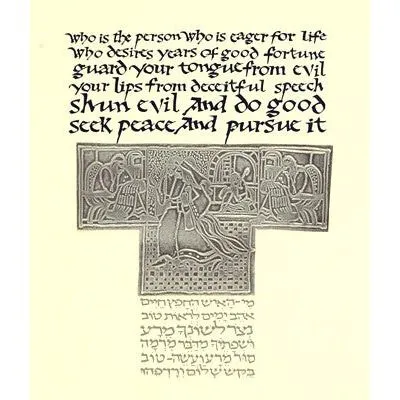 who is the person who is eager for life
who desires years of good fortune
guard your tongue from evil
your lips from deceitful speech
shun evil and do good
seek peace and pursue it
מי-האיש החפץ חיים
אהב ימים לראות טוב
נצר לשונך מרע
ושפתיך מדבר מרמה
סור מרע ועשה-טוב
בקש שלום ורדפהו